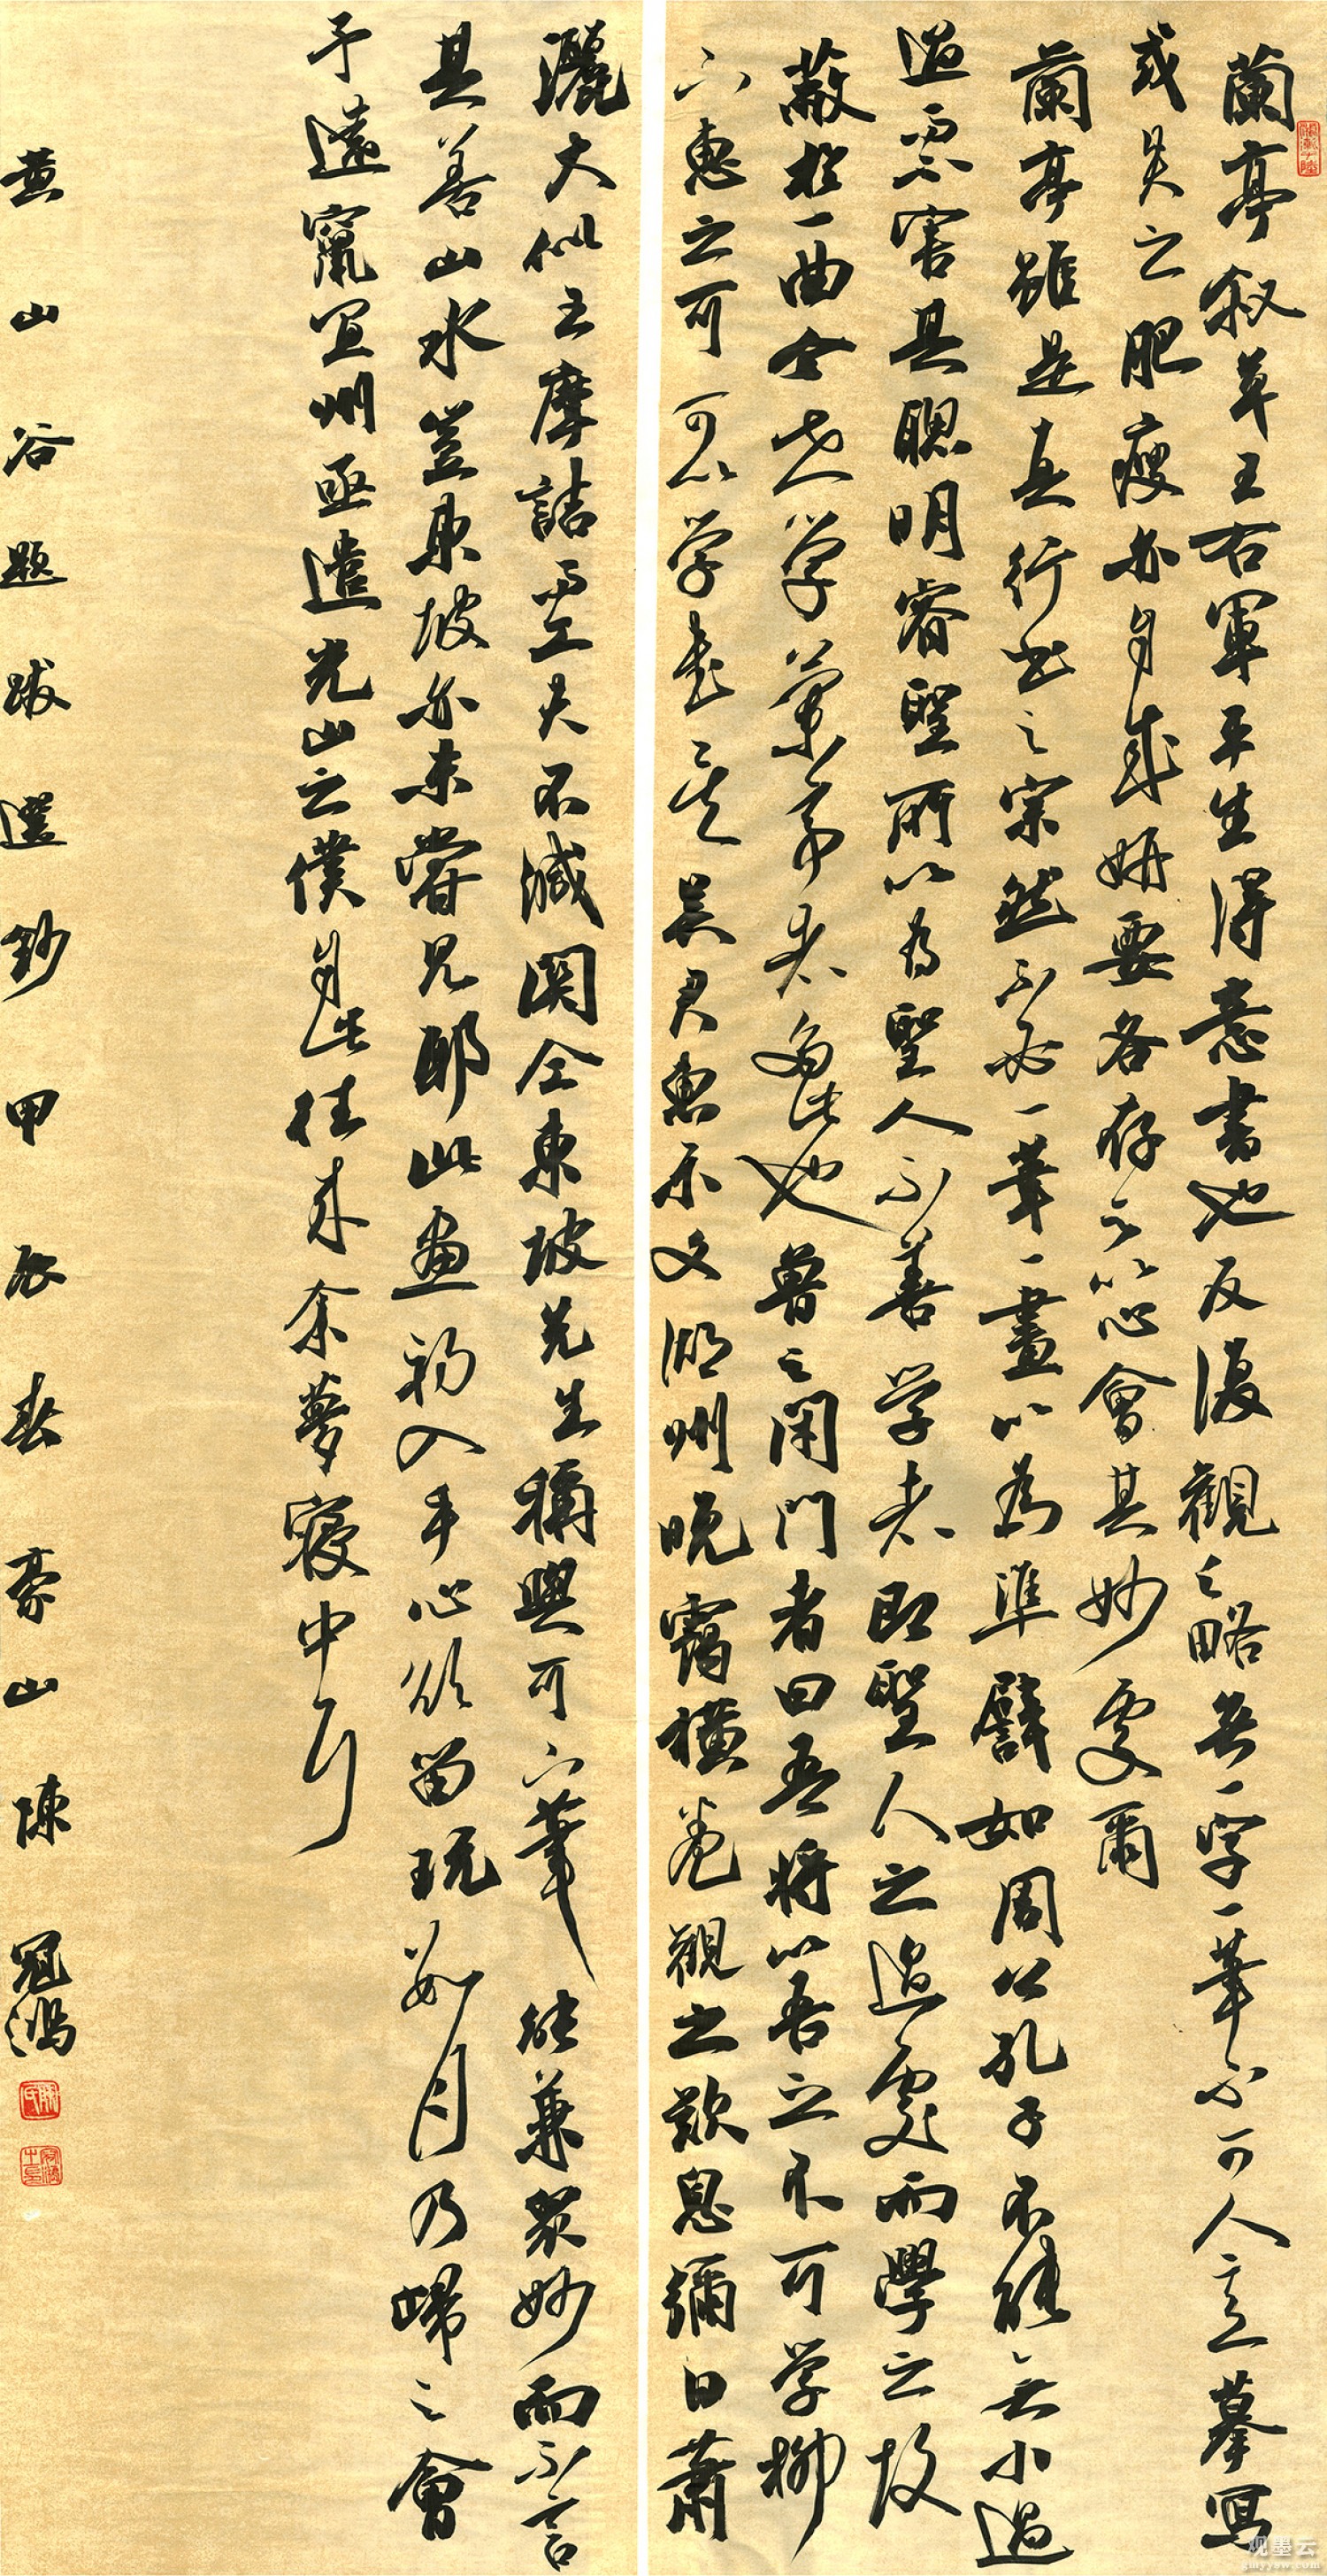 蘭亭叙草王右軍平生得意書也反復觀之略無一字一筆不可人意摹寫
或失之肥瘦亦自成妍要各存之以心會其妙處爾
蘭亭雖是真行書之宗然不必一筆一畫以為準譬如周公孔子不能無小過
過而不害其聰明睿聖所以為聖人不善學者即聖人之過處而學之故
蔽於一曲今世學蘭亭者多此也魯之閉門者曰吾將以吾之不可學柳
下惠之可可以學書矣吳君惠示文湖州晚靄橫卷觀之歎息彌日蕭
灑大似王摩詰而工夫不減關仝東坡先生稱與可下筆能兼衆妙而不言
其善山水豈東坡亦未嘗見耶此畫初入手心欲留玩數月乃歸之會
予遠竄宜州亟遣光山之僕自此往來余夢寐中耳
黄山谷題跋選鈔甲辰春豪山陳冠鴻
观墨云
gmyyaw.com